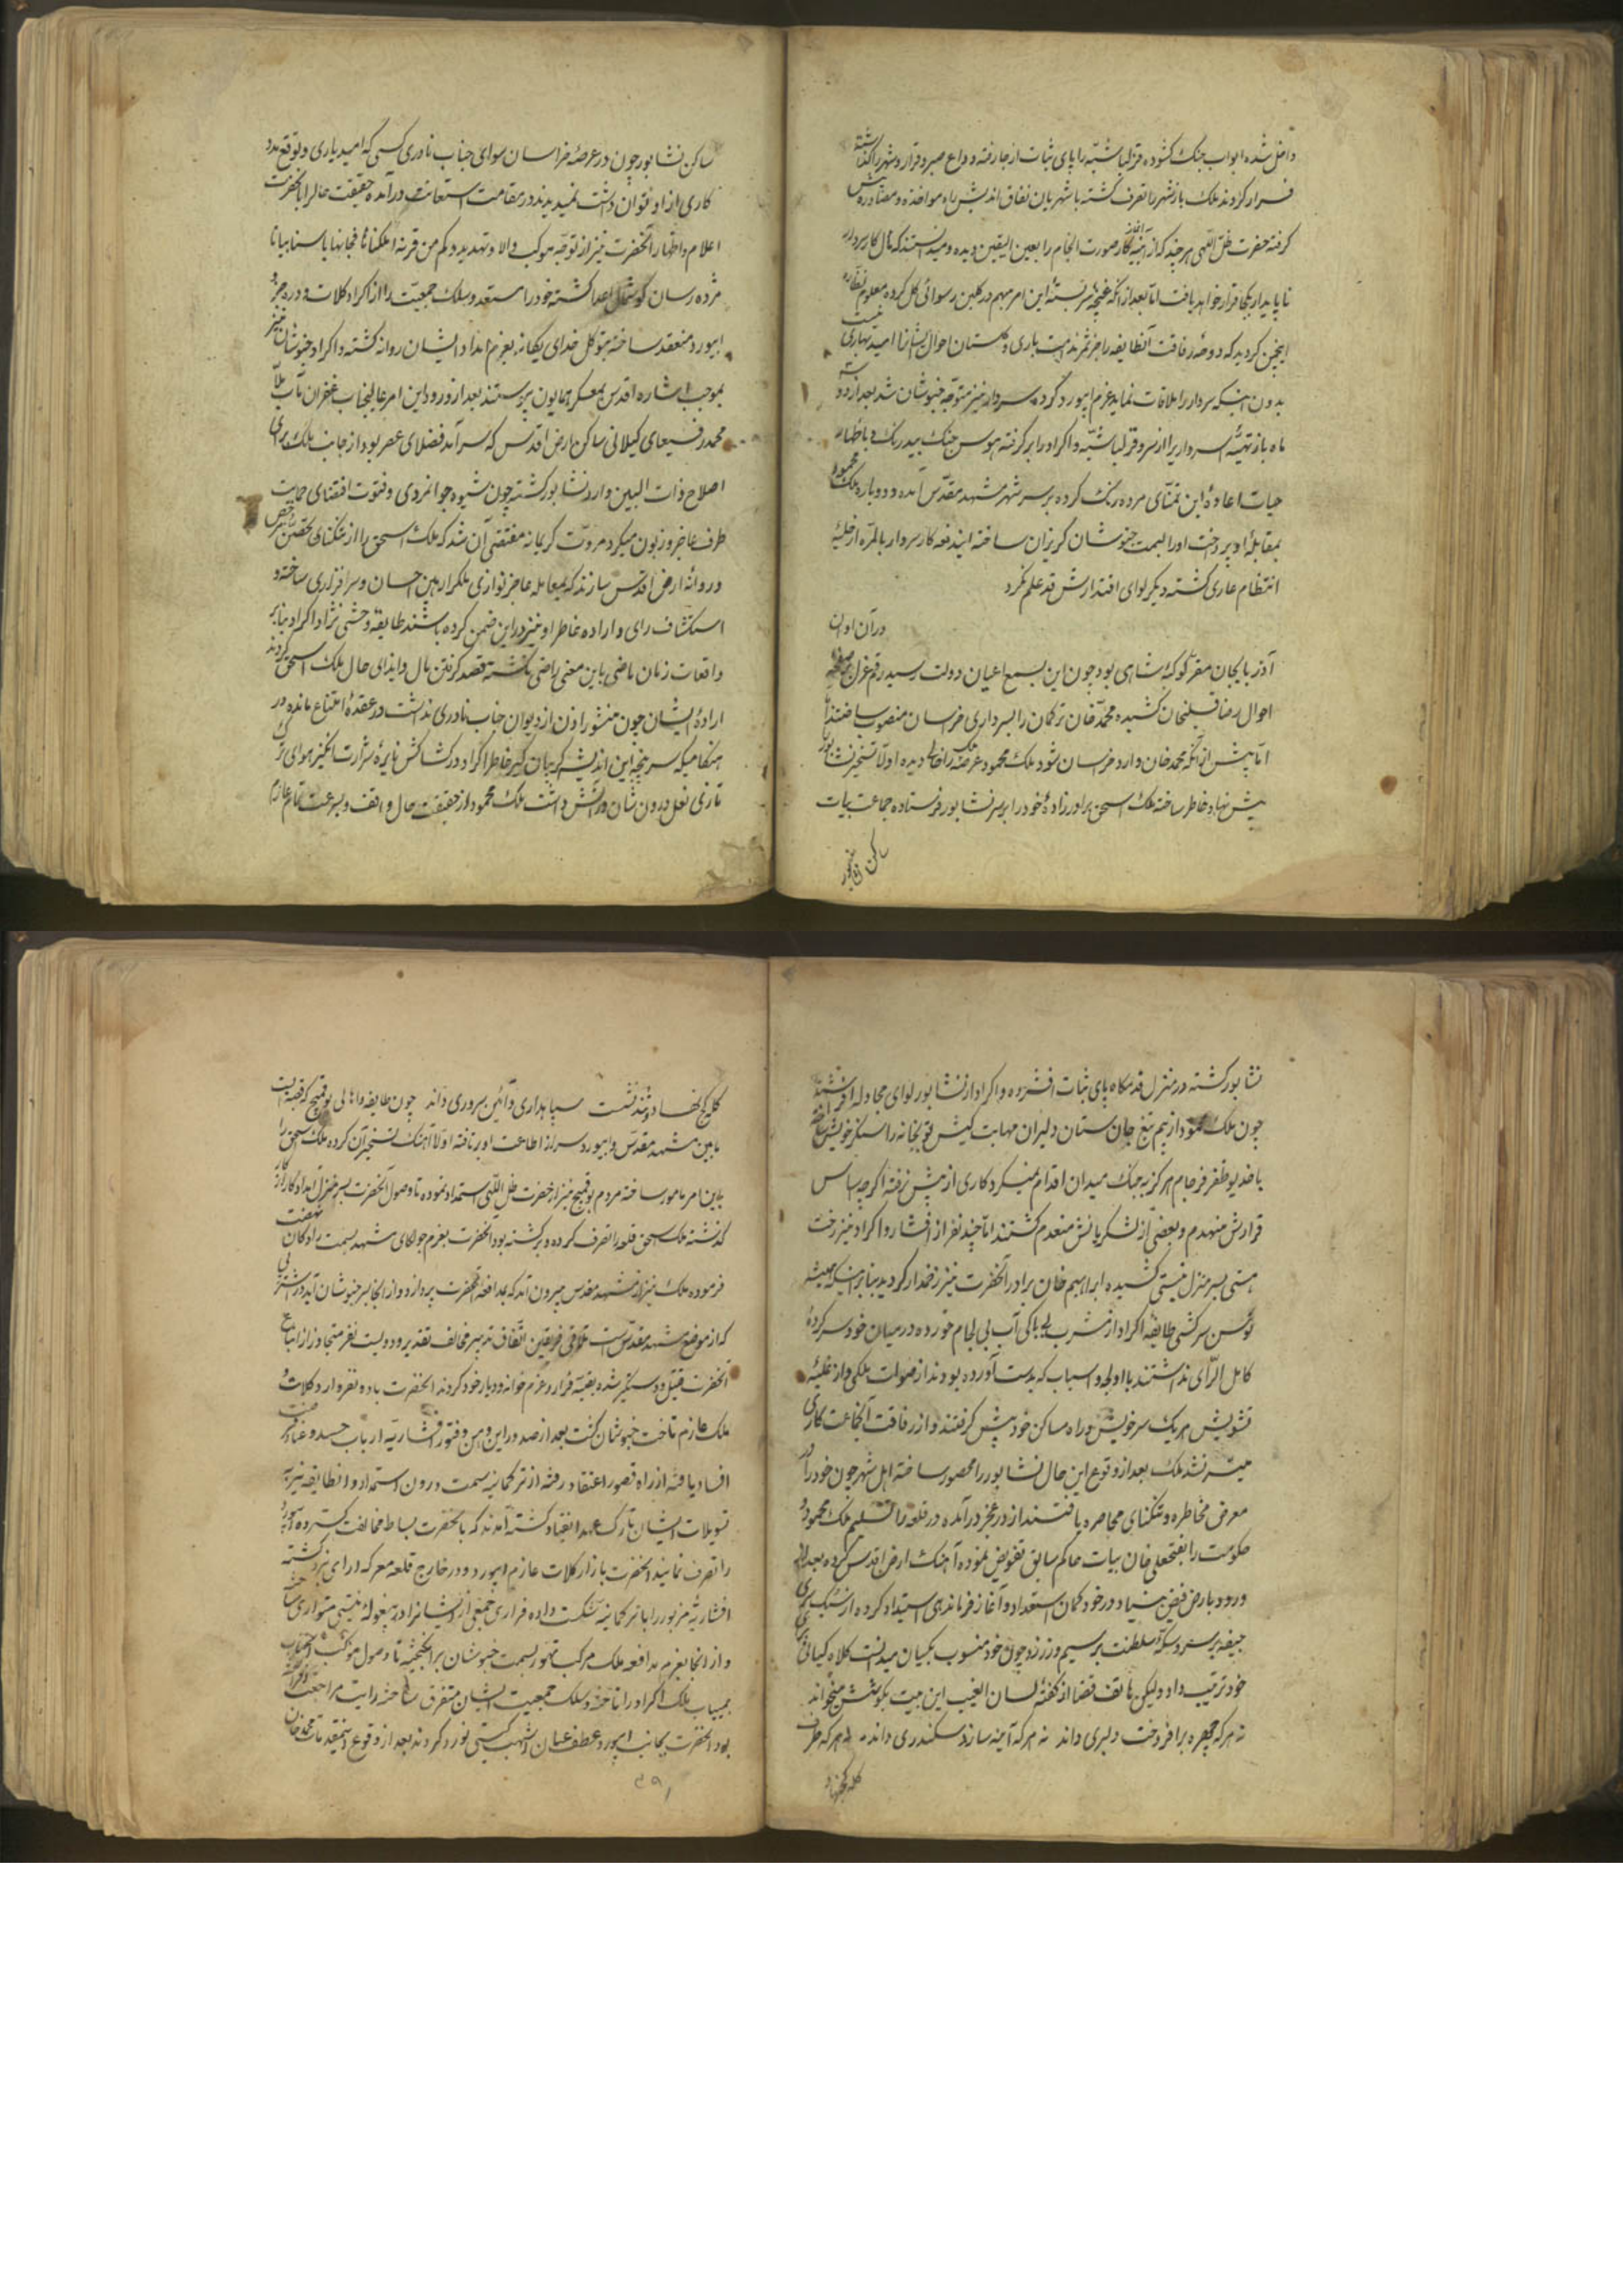 داخل شده ابواب جنک کشوده قزلباشیه را پای ثبات از جا رفته و داع صبر و قرار و شهر را کذاشته
فرار کردند ملک باز شهر را تصرف کشته با شهریان نفاق اندیش راه مواخذه و مصادره پیش
کرفته حضرت ظل اللهی هر چند که از آینه آغاز کار صورت انجام را بعین الیقین دیده و میدانستند که مآل کار سردار
ناپایدار بکجا قرار خواهد یافت اما بعد از آنکه غنچه سربسته این امر مبهم در کلبن رسوائی کل کرده معلوم نظاره
انجمن کردید که دوحه رفاقت آنطایفه را جز ثمر ندامت باری و کلستان احوال ایشانرا امید بهاری نیست
بدون اینکه سردار را ملاقات نماید عزم ابیورد کرده سردار نیز متوجه خبوشان شد بعد از دو سه
ماه باز تهیهٔ اسرداریرا از سر و قزلباشیه و اکراد را بر کرفته هوس جنک بیدرنک و باظهار
حیات اعادهٔ این تمنای مرده ریک کرده بر سر شهر مشهد مقدس آمده و دوباره ملک محمود
بمقابلهٔ او پرداخت او را بسمت خبوشان کریزان ساخته ایندفعه کار سردار بالمره از حلیهٔ
انتظام عاری کشته دیکر لوای اقتدارش قد علم نکرد
در آن اوان
آذربایجان مقر کوکبهٔ شاهی بود چون این بسمع اعیان دولت رسید رقم عزل بر صفحه
احوال رضا قلیخان کشیده محمد خان ترکمان را بسرداری خراسان منصوب ساختند
اما پیش از آنکه محمد خان وارد خراسان شود ملک محمود عرصه را خالی دیده اولا تسخیر نشابور
پیش نهاد خاطر ساخته ملک اسحق برادرزادهٔ خود را بر سر نشابور فرستاده جماعت بیات
ساکن نشابور
ساکن نشابور چون در عرصهٔ خراسان سوای جناب نادری کسی که امید یاری و توقع مدد
کاری از او توان داشت نمیدیدند در مقام استعانت درآمده حقیقت حال را بآنحضرت
اعلام و اظهار آنحضرت نیز از توجه موکب والا و تهدید و کم من قریة اهلکناها فجاءها باسنا بیاتا
مژده رسان کوشمال اعدا کشته خود را مستعد و سلک جمعیت را از اکراد کلات و دره جز و
ابیورد منعقد ساخته بتوکل خدای یکانه بعزم امداد ایشان روانه کشته و اکراد خبوشان نیز
بموجب اشاره اقدس بمعسکر همایون پیوستند بعد از ورود این امر عالیجناب غفران مآب ملا
محمد رفیعای کیلانی ساکن ارض اقدس که سرآمد فضلای عصر بود از جانب ملک برای
اصلاح ذات البین وارد نشابور کشته چون شیوه جوانمردی و فتوت اقتضای حمایت
طرف عاجز و زبون میکرد مروت کریمانه مقتضی آن شد که ملک اسحق را از تنکنای تحصن مرخص
و روانهٔ ارض اقدس سازند که بمعامله عاجز نوازی ملک را رهین احسان و سرافرازی ساخته و
استکشاف رای و اراده خاطر او نیز در این ضمن کرده باشند طایفه وحشی نژاد اکراد بنابر
واقعات زمان ماضی باین معنی راضی نکشته قصد کرفتن مال و ایذای حال ملک اسحق کردند
ارادهٔ ایشان چون منشور اذن از دیوان جناب نادری نداشت در عقدهٔ امتناع مانده در
هنکامیکه سرپنجه این اندیشه کریبان کیر خاطر اکراد و در کشاکش نایره شرارت انکیز هوای ترک
تازی نعل درون شان در آتش داشت ملک محمود از حقیقت حال واقف و بسرعت تمام عازم
نشابور کشته در منزل قدمکاه پای ثبات افشرده و اکراد از نشابور لوای مجادله افراشتند
چون ملک محمود از بیم تیغ جان ستان دلیران مهابت کیش توپخانه را سنکر خویش ساخته
با خدیو ظفر فرجام هرکز به جنک میدان اقدام نمیکرد کاری از پیش نرفته اکرچه اساس
قرارش منهدم و بعضی از لشکریانش منعدم کشتند اما چند نفر از افشار و اکراد نیز رخت
هستی بسرمنزل نیستی کشیده ابراهیم خان برادر آنحضرت نیز زخمدار کردید بنابر اینکه همیشه
توسن سرکشی طایفهٔ اکراد از مشرب بیباکی آب بی لجام خورده در میان خود سرکردهٔ
کامل الرای نداشتند با اولجه و اسباب که بدست آورده بودند از صولت ملکی و از غلبهٔ
تشویش هر یک سر خویش و راه مساکن خود پیش کرفتند و از رفاقت آنجماعت کاری
میسر نشد ملک بعد از وقوع این حال نشابور را محصور ساخته اهل شهر چون خود را در
معرض مخاطره و تنکنای محاصره یافتند از در عجز درآمده در قلعه را تسلیم ملک محمود و
حکومت را بفتحعلی خان بیات حاکم سابق تفویض نموده آهنک ارض اقدس کرده بعد از
ورود بارض فیض بنیاد در خود کمان استعداد و آغاز فرماندهی استبداد کرده از سبک سری
جیغه بر سر و سکهٔ سلطنت بر سیم و زر زد و چون خود منسوب بکیان میدانست کلاه کیانی برای
خود ترتیب داد ولیکن هاتف قضا از کفتهٔ لسان الغیب این بیت بکوشش میخواند
نه هر که چهره برافروخت دلبری داند نه هر که آینه سازد سکندری داند نه هر که طرف
کله کج نهاد
کله کج نهاد و تند نشست سپاهداری و آئین سروری داند چون طایفه و اهالی بوقمیچ که قصبه ایست
مابین مشهد مقدس و ابیورد سر از اطاعت او برتافته اولا آهنک تسخیر آن کرده ملک اسحق را
باین امر مامور ساخته مردم بوقمیچ نیز از حضرت ظل اللهی استمداد نموده تا وصول آنحضرت بسر منزل امداد کار از کار
کذشته ملک اسحق قلعه را تصرف کرده و برکشته بود آنحضرت بعزم جولکای مشهد بسمت رادکان نهضت
فرموده ملک نیز از مشهد مقدس بیرون آمد که بمدافعهٔ آنحضرت پردازد و از آنجا بر سر خبوشان آید در شترپی
که از موضع مشهد مقدس است تلاقی فریقین اتفاق تدبیر مخالف تقدیر و دویست نفر متجاوز از اتباع
آنحضرت قتیل و دستکیر شده بقیه فرار و عزم خانه و دیار خود کردند آنحضرت با ده نفر وارد کلات و
ملک عازم تاخت خبوشان کشت بعد از صدور این وهن و فتور افشاریه ارباب حسد و عناد فرصت
افساد یافته از راه قصور اعتقاد رفته از ترکمانیه سمت درون استمداد و آنطایفه نیز به
تسویلات ایشان تارک عهد انقیاد کشته آمدند که با آنحضرت بساط مخالفت کسترده ابیورد
را تصرف نمایند آنحضرت باز از کلات عازم ابیورد و در خارج قلعه معرکه آرای نبرد کشته
افشاریه مزبور را با ترکمانیه شکست داده فراری جمعی از ایشانرا در بیغولهٔ نیستی متواری ساخته
و از آنجا بعزم مدافعه ملک مرکب تهور بسمت خبوشان برانکیخته تا وصول موکب آنجناب
بمیاب ملک اکراد را تاخته و سلک جمعیت ایشان متفرق ساخته رایت مراجعت افراخته
بود آنحضرت بجانب ابیورد عطف عنان اشهب کیتی نورد کردند بعد از وقوع اینمقدمات محمد خان